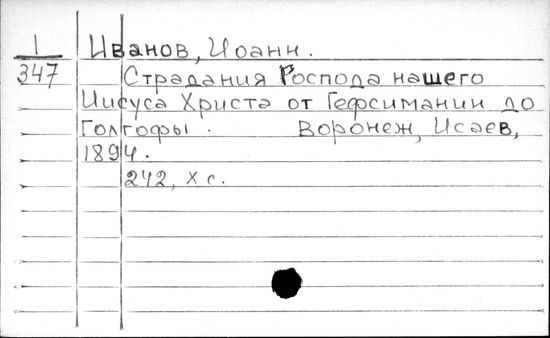 1 Иванов, Иоанн.
347 Страдания Господа нашего
Иисуса Христа от Гефсимании до
Голгофы. Воронеж, Исаев,
1894.
242, X с.